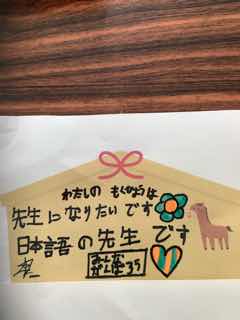 わたしの もくひょうは
先生になりたいです
日本語の先生です